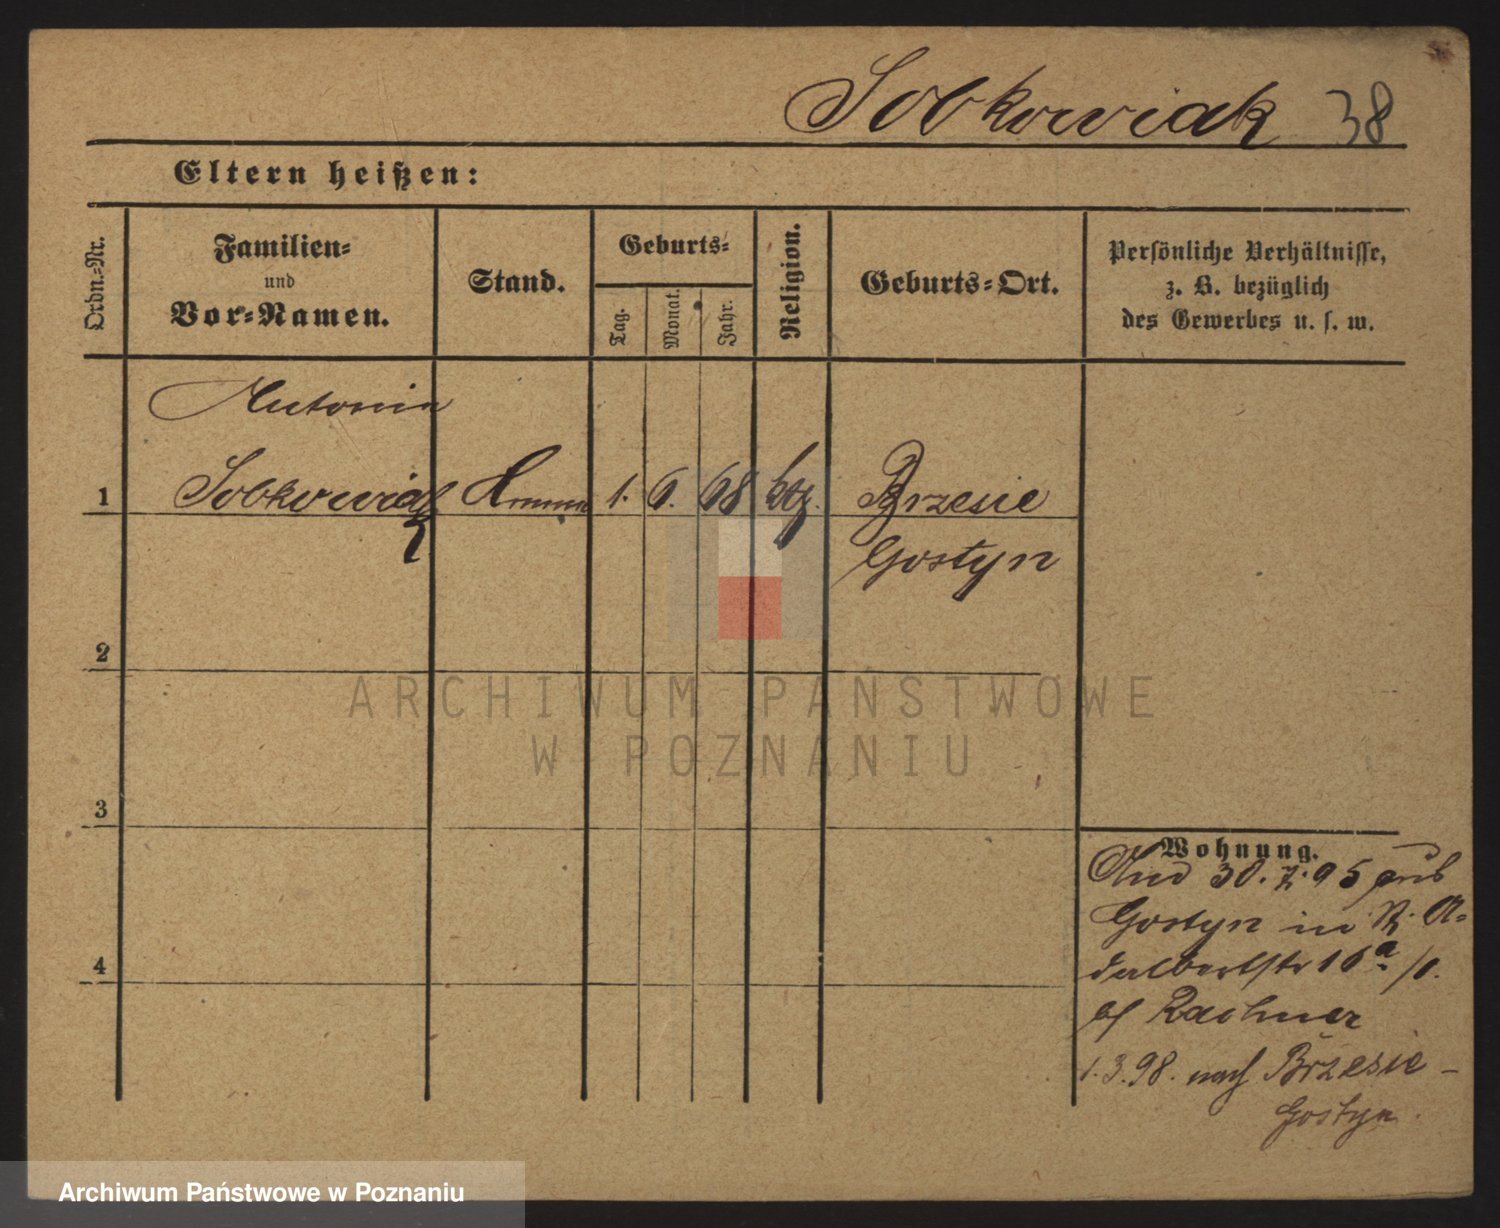 Sobkowiak 38
Eltern heißen:
Ordn.=Nr.
Familien=
und
Vor=Namen.
Stand.
Geburts=
Tag.
Monat.
Jahr.
Religion.
Geburts=Ort.
Persönliche Verhältnisse,
z. B. bezüglich
des Gewerbes u. s. w.
Antonia
1 Sobkowiak 1. 6. 68 ktz. Brzesie
Gostyn
2
ARCHIWUM PAŃSTWOWE
W POZNANIU
3
Wohnung.
30. 7. 95 aus
Gostyn in A=
dalbertstr 16a
Rachner
4
1. 3. 98. nach Brzesie –
Gostyn
Archiwum Państwowe w Poznaniu